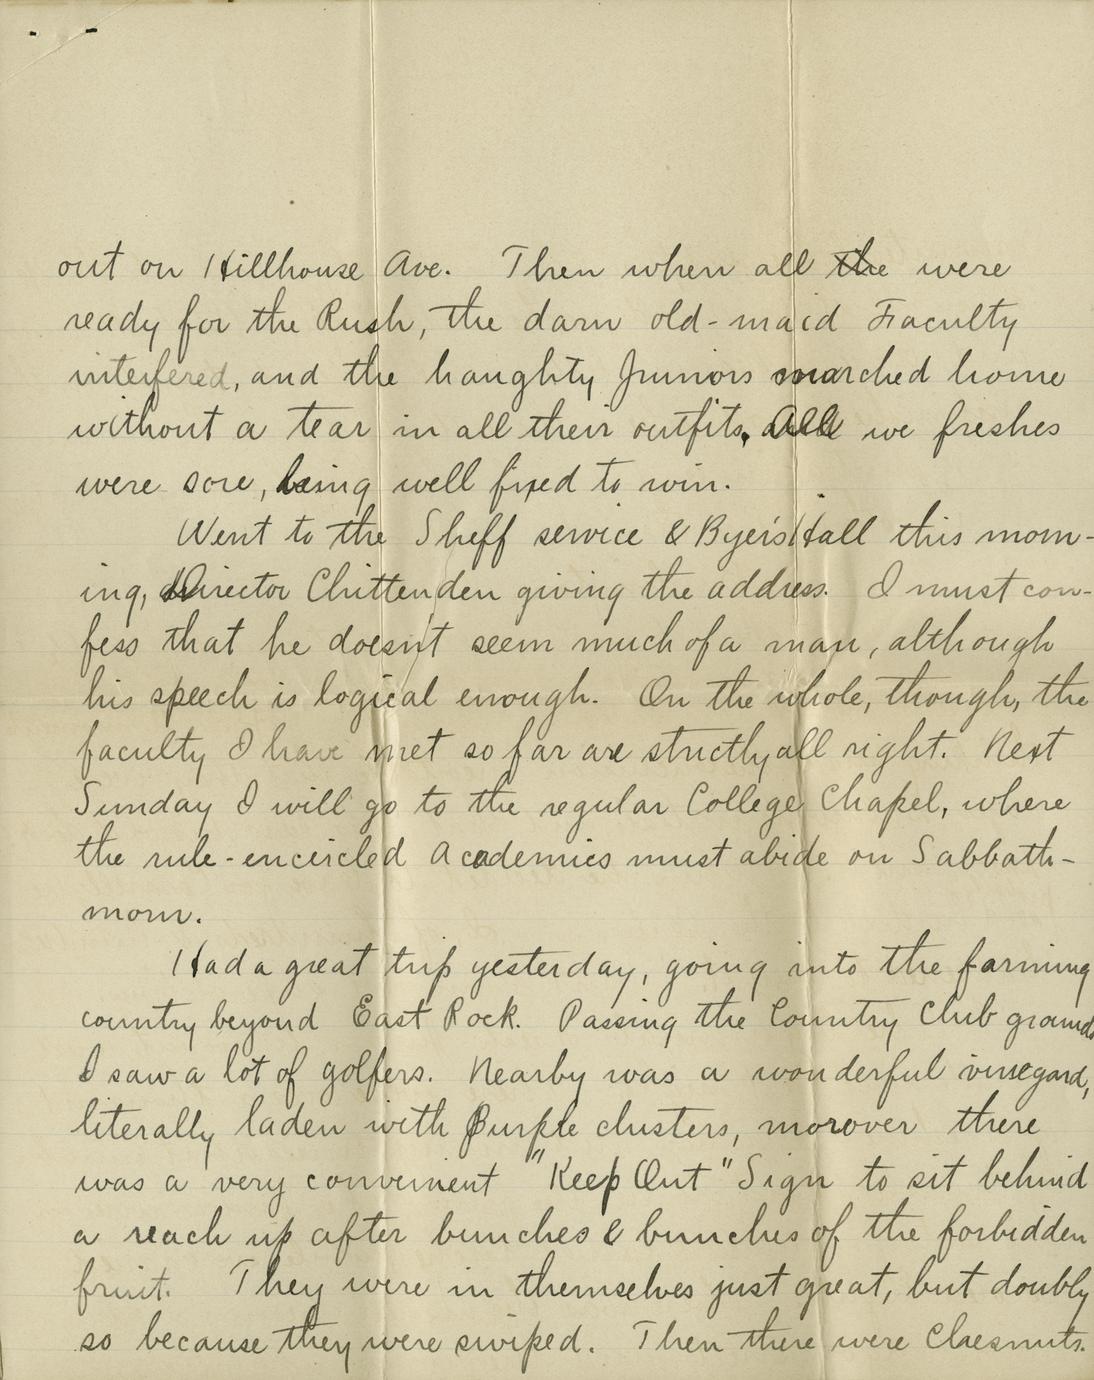 out on Hillhouse Ave. Then when all the were
ready for the Rush, the darn old-maid Faculty
interfered, and the haughty Juniors marched home
without a tear in all their outfits. All we freshes
were sore, being well fixed to win.
Went to the Sheff service & Byers Hall this morn-
ing, Director Chittenden giving the address. I must con-
fess that he doesn't seem much of a man, although
his speech is logical enough. On the whole, though, the
faculty I have met so far are strictly all right. Next
Sunday I will go to the regular College Chapel, where
the rule-encircled Academics must abide on Sabbath-
morn.
Had a great trip yesterday, going into the farming
country beyond East Rock. Passing the Country Club grounds
I saw a lot of golfers. Nearby was a wonderful vineyard,
literally laden with Purple clusters, morover there
was a very convenient "Keep Out" Sign to sit behind
a reach up after bunches & bunches of the forbidden
fruit. They were in themselves just great, but doubly
so because they were swiped. Then there were Chesnuts.